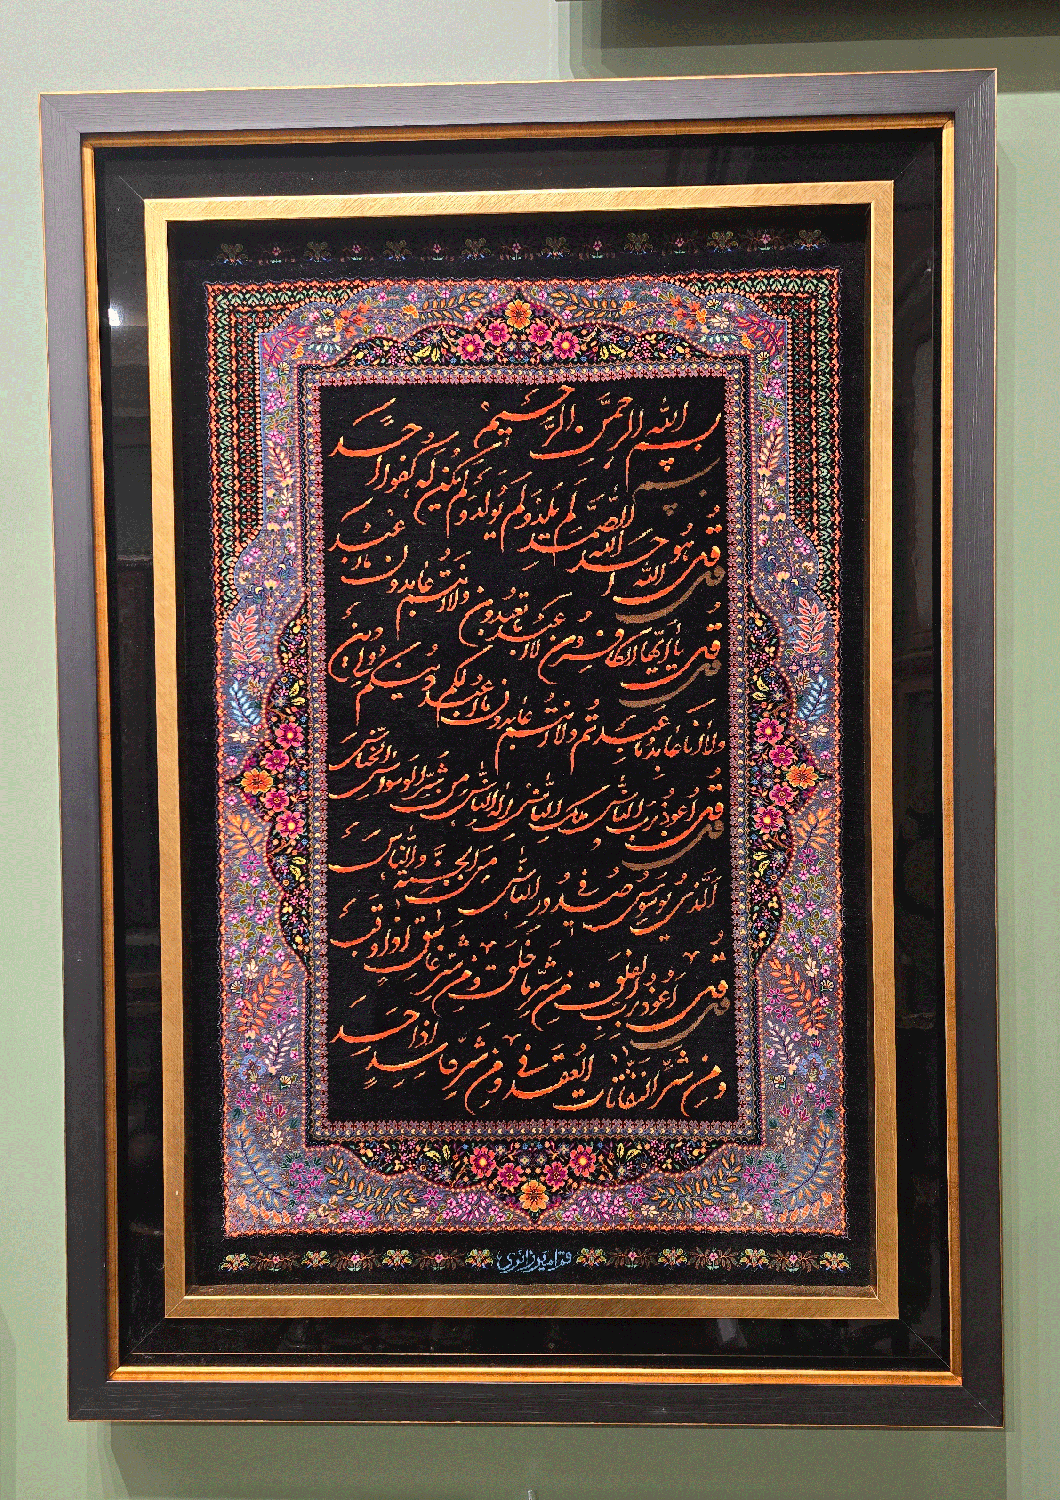 بسم الله الرحمن الرحیم
قل هو الله احد الله الصمد لم یلد ولم یولد ولم یکن له کفوا احد
قل یا ایها الکافرون لا اعبد ما تعبدون ولا انتم عابدون ما اعبد
ولا انا عابد ما عبدتم ولا انتم عابدون ما اعبد لکم دینکم ولی دین
قل اعوذ برب الناس ملک الناس اله الناس من شر الوسواس الخناس
الذی یوسوس فی صدور الناس من الجنة والناس
قل اعوذ برب الفلق من شر ما خلق ومن شر غاسق اذا وقب
ومن شر النفاثات فی العقد ومن شر حاسد اذا حسد